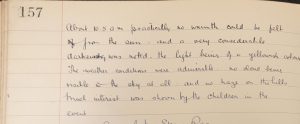 157
About 10.50 a.m. practically no warmth could be felt
from the sun and a very considerable
darkening was noted, the light being of a yellowish colour
The weather conditions were admirable - no clouds being
visible in the sky at all and no haze on the hills.
Great interest was shown by the children in the
event